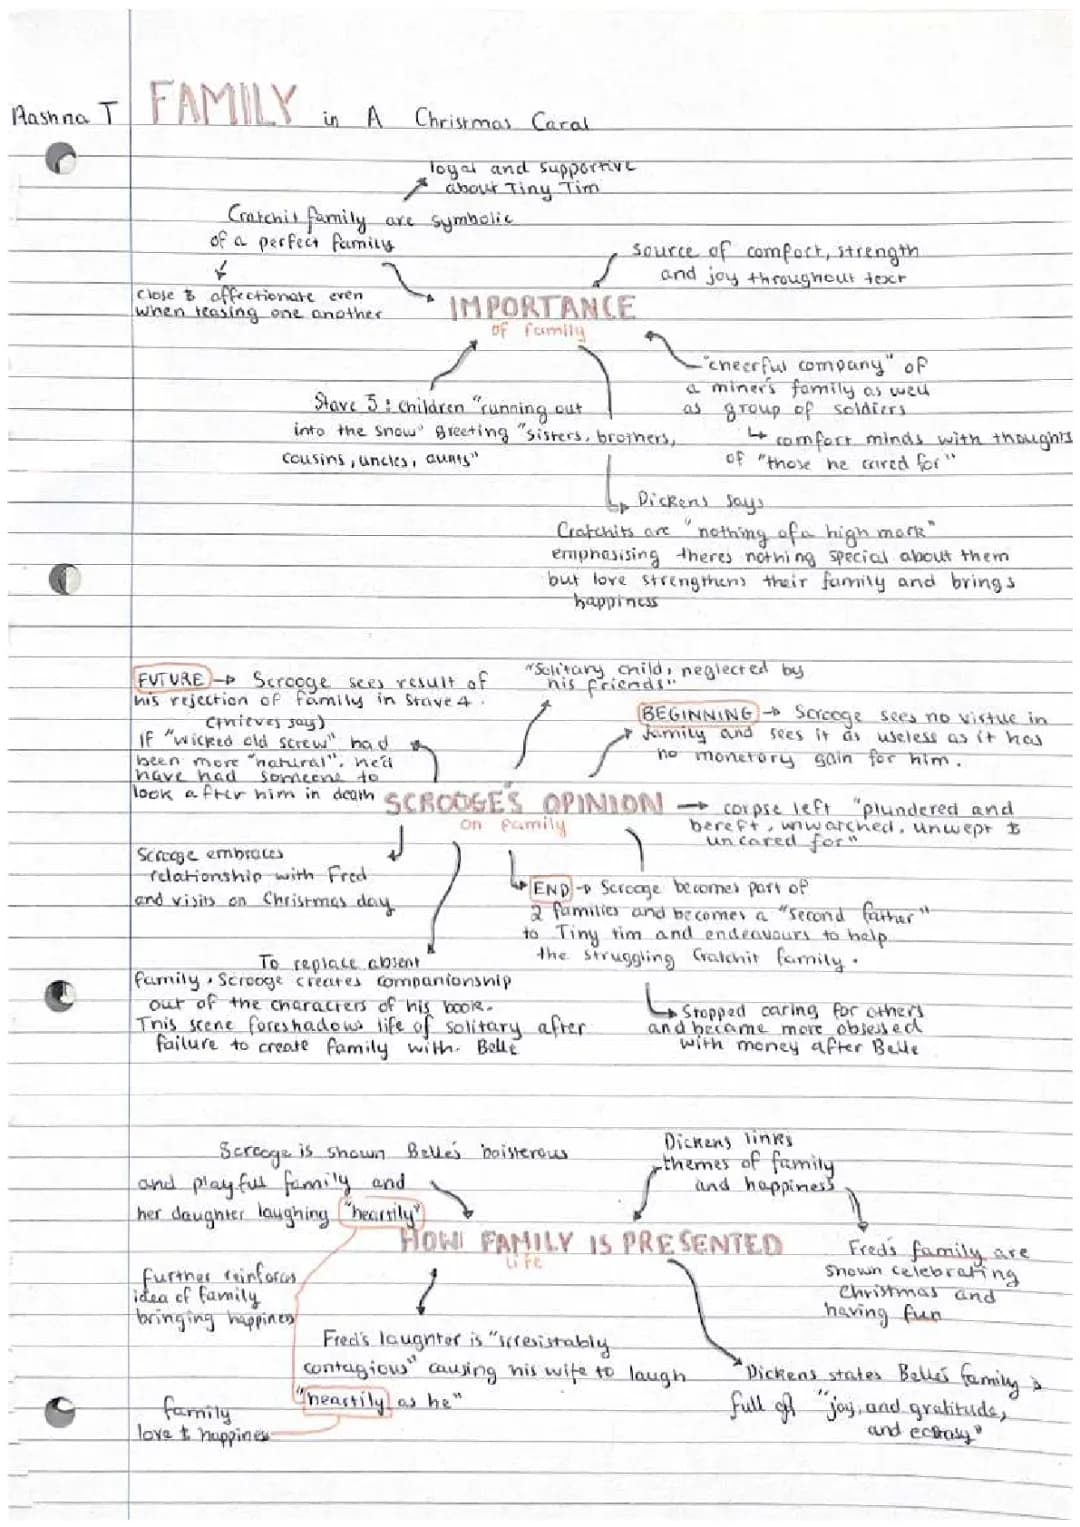 Aashna T FAMILY in A Christmas Carol
loyal and supportive
about Tiny Tim
Cratchit family are symbolic
of a perfect family
close & affectionate even
when teasing one another
source of comfort, strength
and joy throughout text
IMPORTANCE
of family
"cheerful company" of
a miner's family as well
as group of soldiers
↳ comfort minds with thoughts
of "those he cared for"
Stave 5: children "running out
into the snow" greeting "sisters, brothers,
cousins, uncles, aunts"
Dickens says
Cratchits are "nothing of a high mark"
emphasising theres nothing special about them
but love strengthens their family and brings
happiness
FUTURE → Scrooge sees result of
his rejection of family in Stave 4.
(thieves say)
If "wicked old screw" had
been more "natural", he'd
have had someone to
look after him in death
"Solitary child, neglected by
his friends"
BEGINNING → Scrooge sees no virtue in
family and sees it as useless as it has
no monetary gain for him.
SCROOGE'S OPINION
on family
→ corpse left "plundered and
bereft, unwatched, unwept &
uncared for"
Scrooge embraces
relationship with Fred
and visits on Christmas day
END → Scrooge becomes part of
2 families and becomes a "second father"
to Tiny tim and endeavours to help
the struggling Cratchit family.
To replace absent
family, Scrooge creates companionship
out of the characters of his book.
This scene foreshadows life of solitary after
failure to create family with Belle
Stopped caring for others
and became more obsessed
with money after Belle
Scrooge is shown Belle's boisterous
and playful family and
her daughter laughing "heartily"
Dickens links
themes of family
and happiness
HOW FAMILY IS PRESENTED
life
Fred's family are
shown celebrating
Christmas and
having fun
further reinforces
idea of family
bringing happiness
Fred's laughter is "irresistably
contagious" causing his wife to laugh
"heartily as he"
family
love & happiness
Dickens states Belle's family is
full of "joy, and gratitude,
and ecstasy"